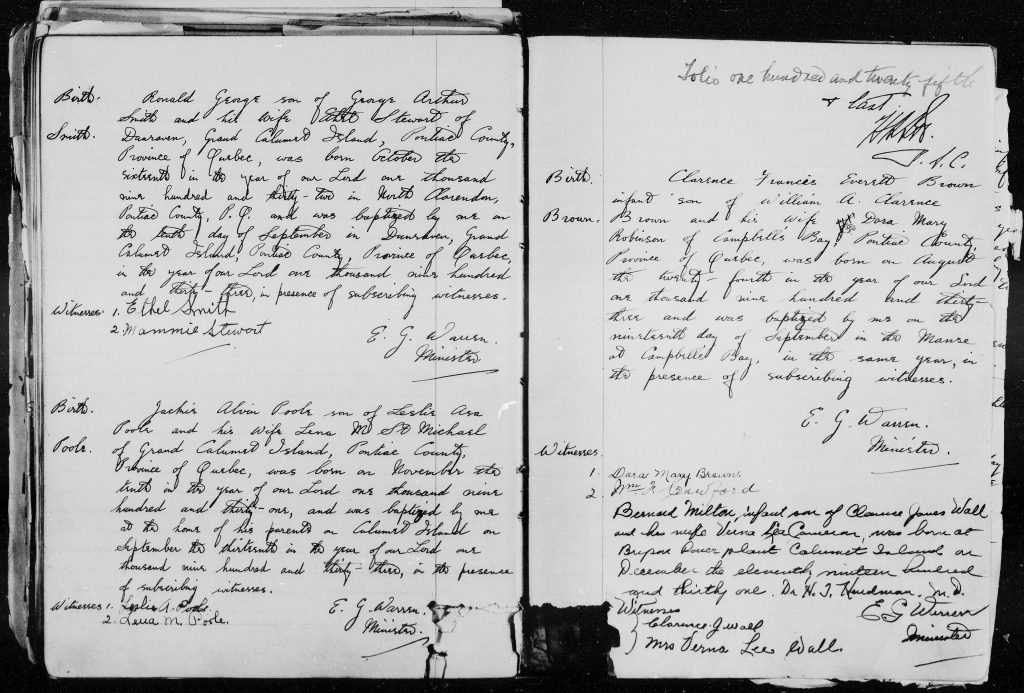 Birth. Ronald George son of George Arthur
Smith and his wife Ethel Stewart of
Smith. Dunraven, Grand Calumet Island, Pontiac County,
Province of Quebec, was born October the
sixteenth in the year of our Lord one thousand
nine hundred and thirty-two in North Clarendon,
Pontiac County, P.Q. and was baptized by me on
the tenth day of September in Dunraven, Grand
Calumet Island, Pontiac County, Province of Quebec,
in the year of our Lord one thousand nine hundred
and thirty-three, in presence of subscribing witnesses.
Witnesses 1. Ethel Smith
2. Mammie Stewart
E. G. Warren.
Minister
Birth. Jackie Alvin Poole son of Leslie Asa
Poole and his wife Lena M. St Michael
Poole. of Grand Calumet Island, Pontiac County,
Province of Quebec, was born on November the
tenth in the year of our Lord one thousand nine
hundred and thirty-one, and was baptized by me
at the home of his parents on Calumet Island on
September the thirteenth in the year of our Lord one
thousand nine hundred and thirty-three, in the presence
of subscribing witnesses.
Witnesses 1. Leslie A. Poole
2. Lena M. Poole.
E. G. Warren.
Minister.
Folio one hundred and twenty fifth
& last.
Birth. Clarence Francis Everett Brown
infant son of William A. Clarence
Brown. Brown and his wife Dora Mary
Robinson of Campbell's Bay, Pontiac County,
Province of Quebec, was born on August
the twenty-fourth in the year of our Lord
one thousand nine hundred and thirty-
three and was baptized by me on the
nineteenth day of September in the Manse
at Campbell's Bay, in the same year, in
the presence of subscribing witnesses.
E. G. Warren.
Minister.
Witnesses
1. Dora Mary Brown.
2. Wm F. Crawford
Bernard Milton, infant son of Clarence James Wall
and his wife Verna Lee Cameron, was born at
Power plant Calumet Island on
December the eleventh, nineteen hundred
and thirty one. Dr. H. T. Hurdman. M.D.
Witnesses
E G Warren
Clarence J Wall
Minister
Mrs Verna Lee Wall.